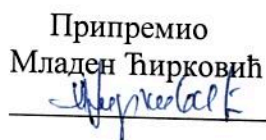 Припремио
Младен Ћирковић